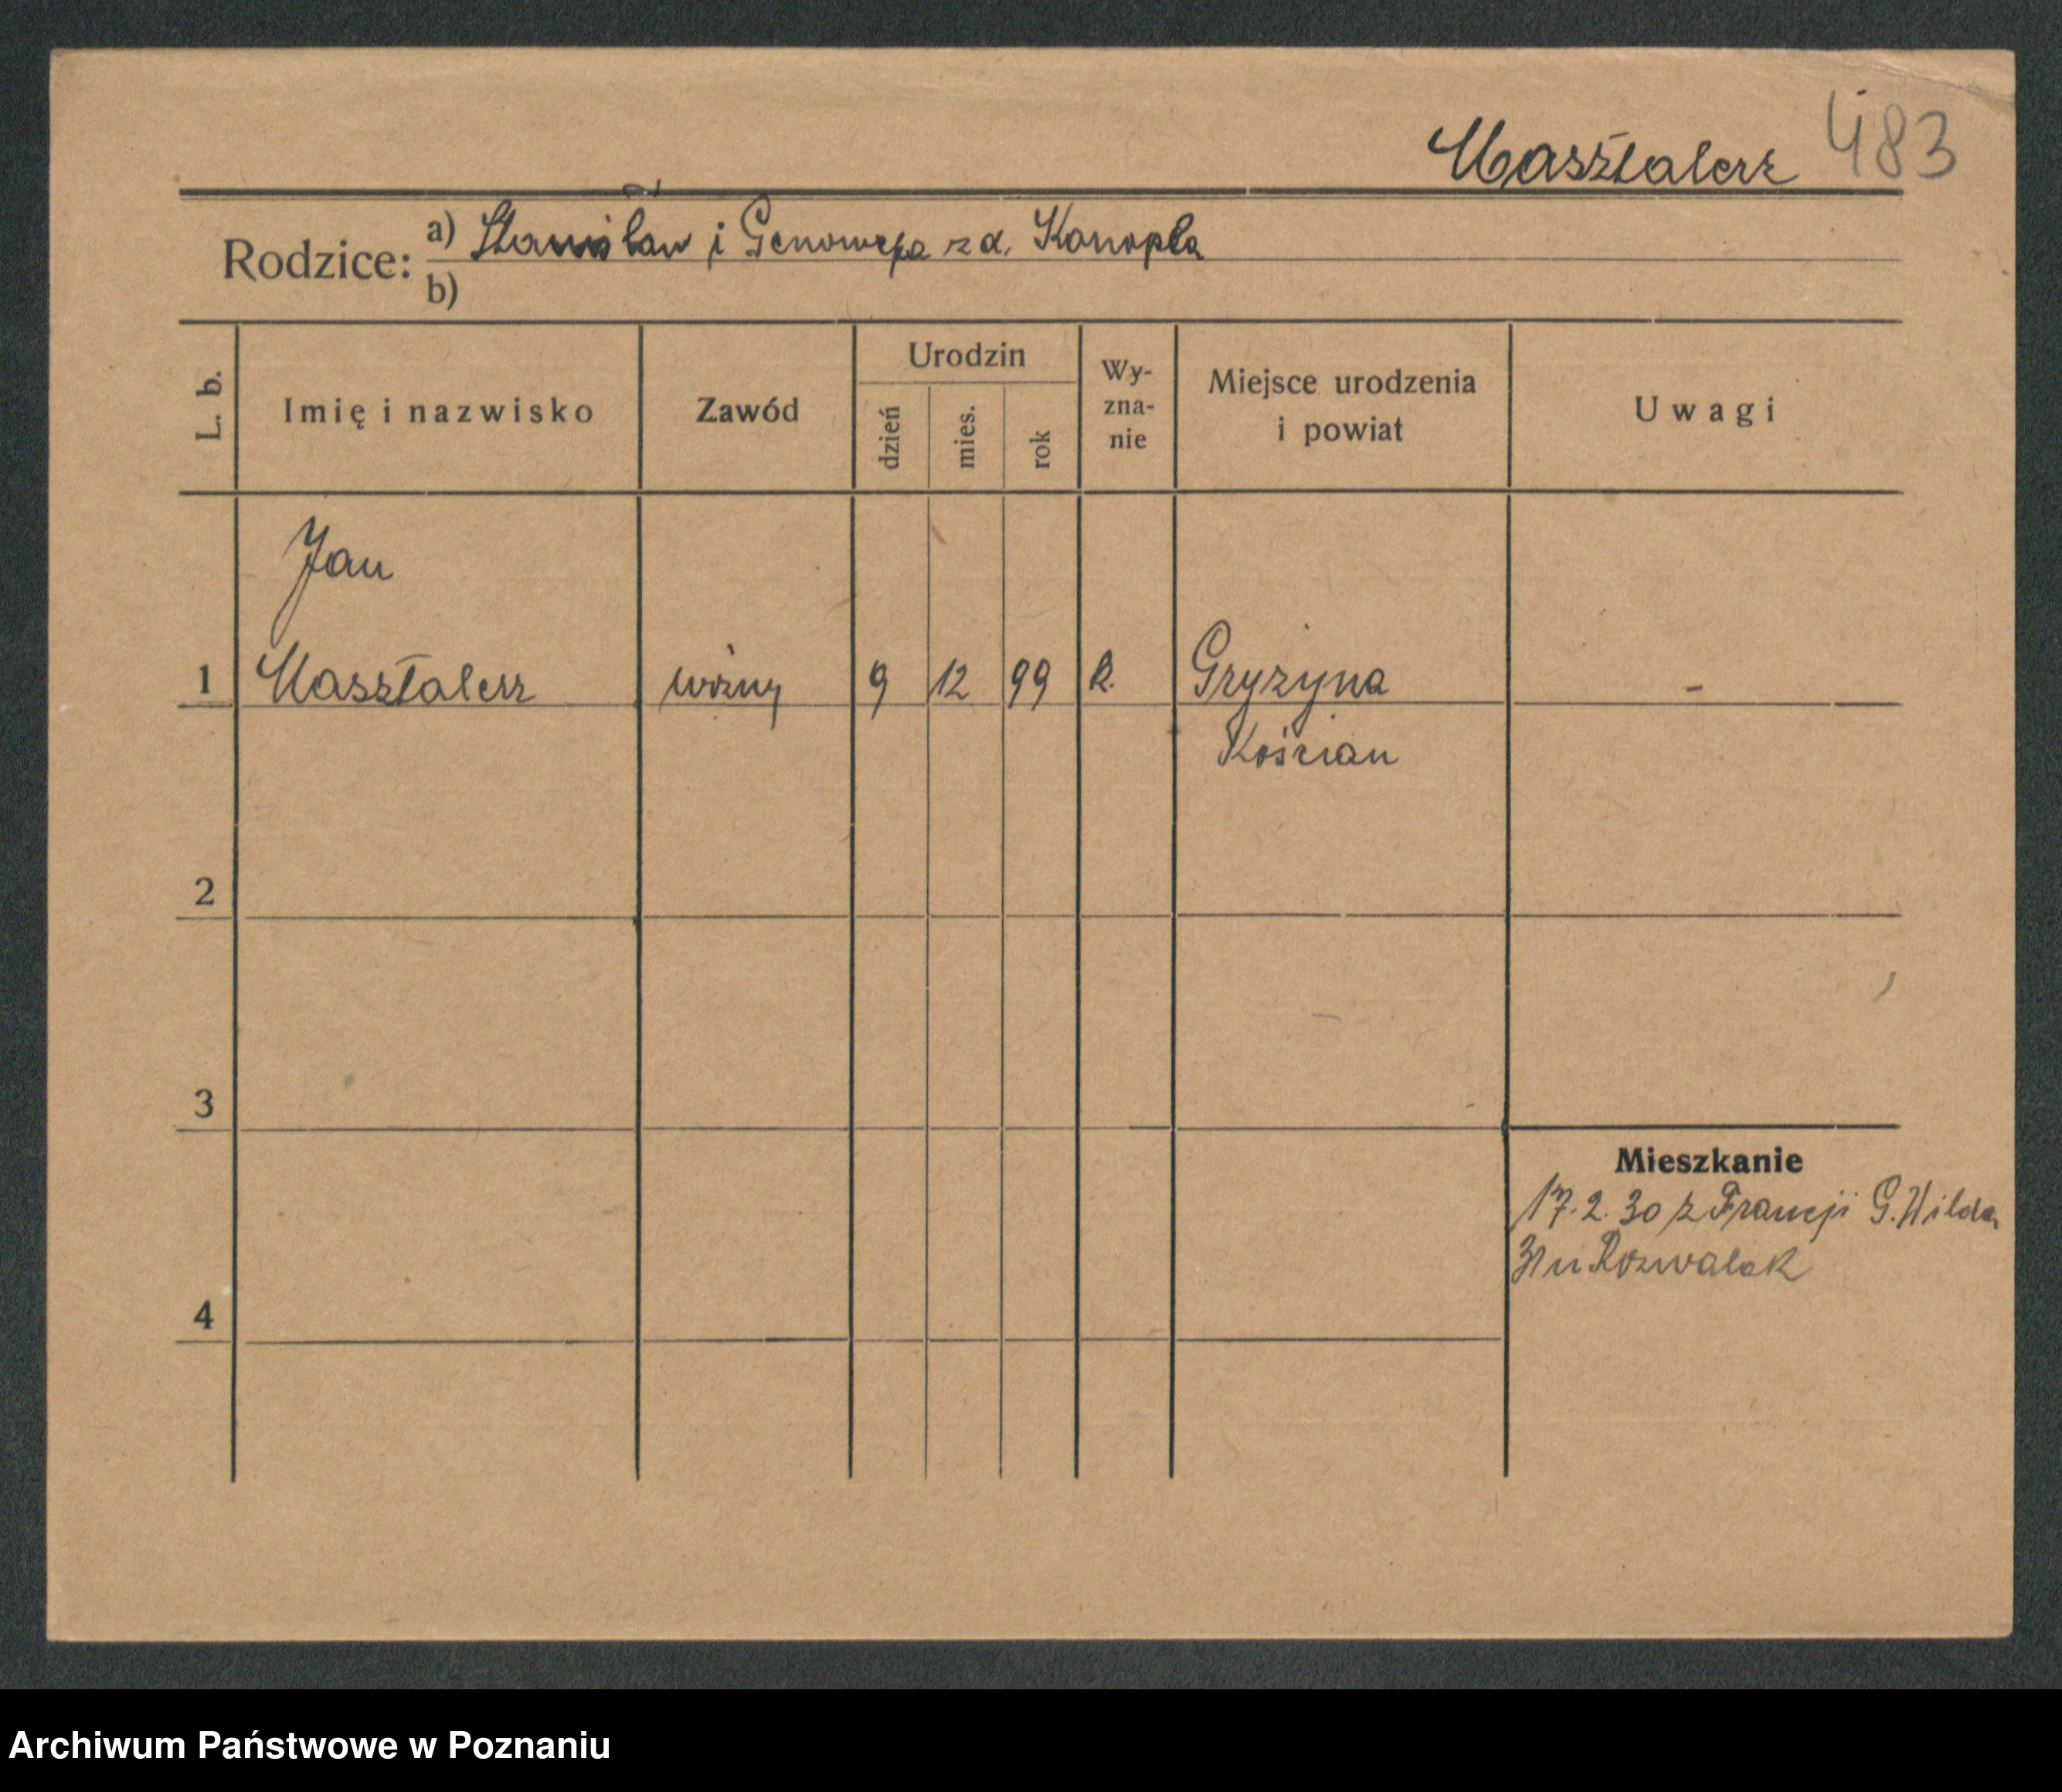 Masztalerz 483
Rodzice: a) Stanisław i Genowefa z d. Konopka
b)
L. b. Imię i nazwisko Zawód Urodzin dzień mies. rok Wy-zna-nie Miejsce urodzenia i powiat Uwagi
Jan
1 Masztalerz woźny 9 12 99 R. Gryżyna -
Kościan
2
3
Mieszkanie
17.2.30 z Francji G. Wilda
31 u Rozwalak
4
Archiwum Państwowe w Poznaniu